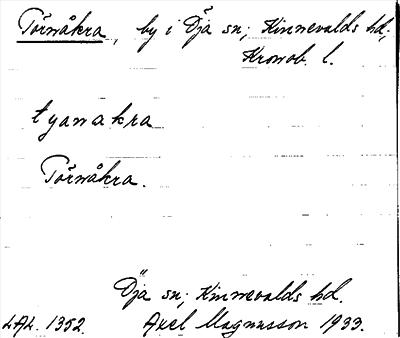 Törnåkra, by i Öja sn; Kinnevalds hd;
Kronob. l.
tyanakra
Törnåkra.
Öja sn; Kinnevalds hd.
LAL. 1352. Axel Magnusson 1933.